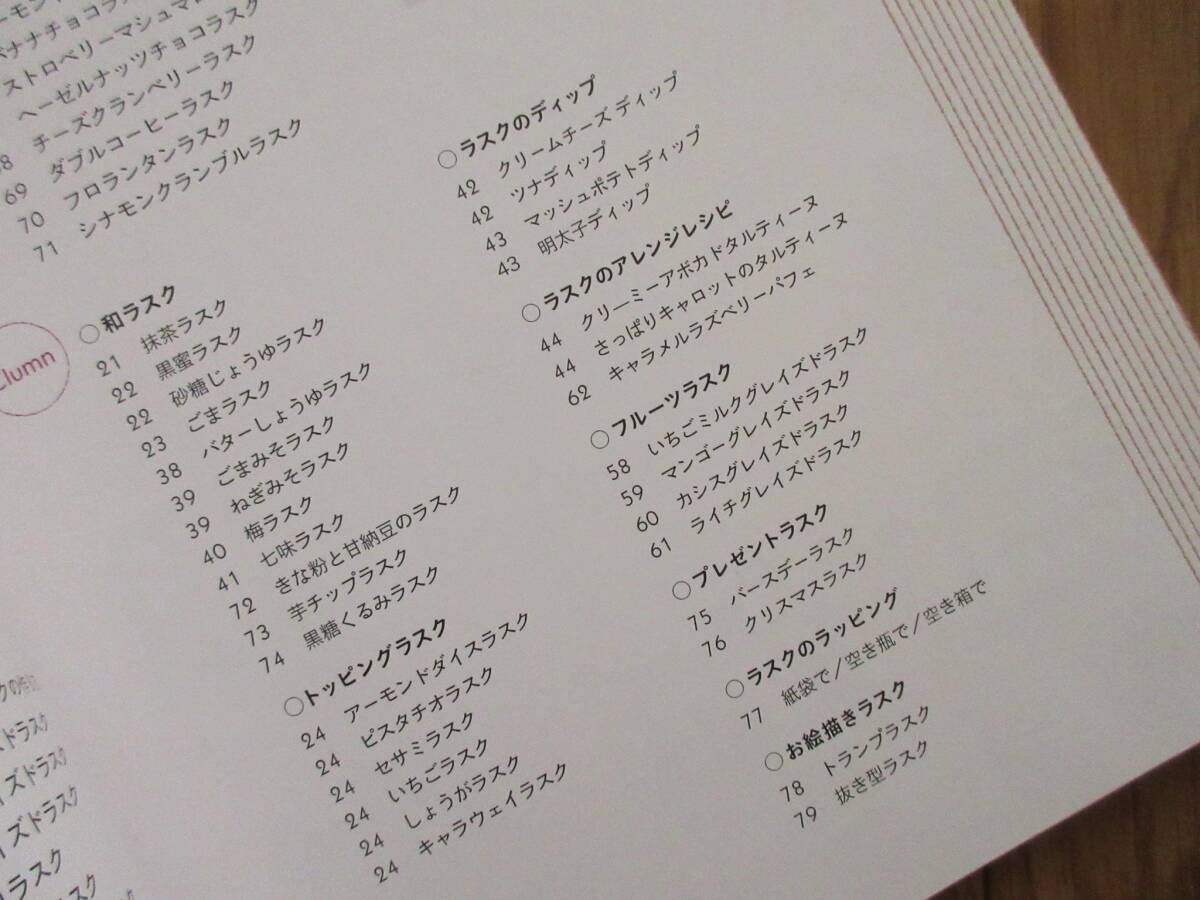 ヘーゼルナッツチョコラスク
チーズクランベリーラスク
69 ダブルコーヒーラスク
70 フロランタンラスク
71 シナモンクランブルラスク
○和ラスク
21 抹茶ラスク
22 黒蜜ラスク
22 砂糖じょうゆラスク
23 ごまラスク
38 バターしょうゆラスク
39 ごまみそラスク
39 ねぎみそラスク
40 梅ラスク
41 七味ラスク
72 きな粉と甘納豆のラスク
73 芋チップラスク
74 黒糖くるみラスク
○トッピングラスク
24 アーモンドダイスラスク
24 ピスタチオラスク
24 セサミラスク
24 いちごラスク
24 しょうがラスク
24 キャラウェイラスク
○ラスクのディップ
42 クリームチーズ ディップ
42 ツナディップ
43 マッシュポテトディップ
43 明太子ディップ
○ラスクのアレンジレシピ
44 クリーミーアボカドタルティーヌ
44 さっぱりキャロットのタルティーヌ
62 キャラメルラズベリーパフェ
○フルーツラスク
58 いちごミルクグレイズドラスク
59 マンゴーグレイズドラスク
60 カシスグレイズドラスク
61 ライチグレイズドラスク
○プレゼントラスク
75 バースデーラスク
76 クリスマスラスク
○ラスクのラッピング
77 紙袋で/空き瓶で/空き箱で
○お絵描きラスク
78 トランプラスク
79 抜き型ラスク